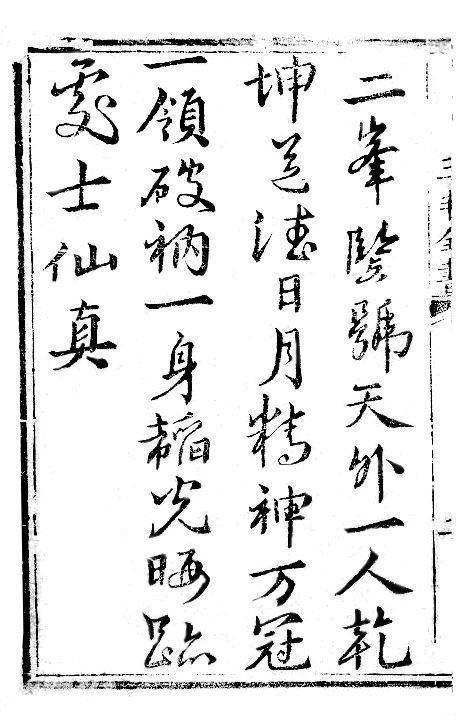 二峯豎號天外一人乾
坤道德日月精神万冠
一領破衲一身韜光晦跡
處士仙真